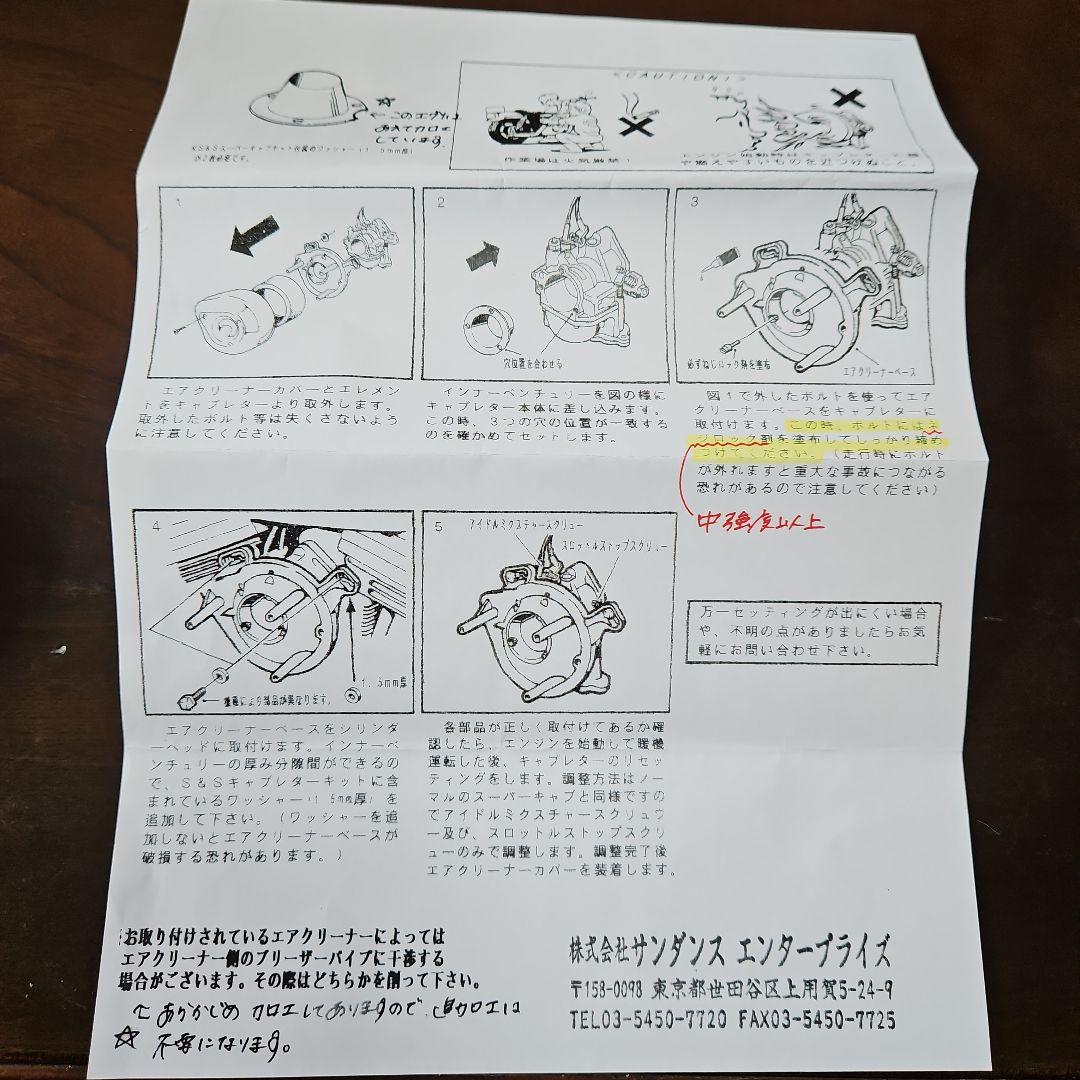 <CAUTION!>
☆
←このエグレは
あえて加工
しています
※S&Sスーパーキャブキット付属のワッシャー(1.5mm厚)
が2枚必要です。
作業場は火気厳禁!
エンジン始動時は
や燃えやすいものを近づけぬこと。
1
2
3
穴位置を合わせる
必ずねじロック剤を塗布
エアクリーナーベース
エアクリーナーカバーとエレメン
トをキャブレターより取外します。
取外したボルト等は失くさないよう
に注意してください。
インナーベンチュリーを図の様に
キャブレター本体に差し込みます。
この時、3つの穴の位置が一致する
のを確かめてセットします。
図1で外したボルトを使ってエア
クリーナーベースをキャブレターに
取付けます。この時、ボルトにはネ
ジロック剤を塗布してしっかり締め
つけてください。(走行時にボルト
が外れますと重大な事故につながる
恐れがあるので注意してください)
中強度以上
4
5
アイドルミクスチャースクリュー
スロットルストップスクリュー
1.5mm厚
←車種により部品が異なります。
万一セッティングが出にくい場合
や、不明の点がありましたらお気
軽にお問い合わせ下さい。
エアクリーナーベースをシリンダ
ーヘッドに取付けます。インナーベ
ンチュリーの厚み分隙間ができるの
で、S&Sキャブレターキットに含
まれているワッシャー(1.5mm厚)を
追加して下さい。(ワッシャーを追
加しないとエアクリーナーベースが
破損する恐れがあります。)
各部品が正しく取付けてあるか確
認したら、エンジンを始動して暖機
運転した後、キャブレターのリセッ
ティングをします。調整方法はノー
マルのスーパーキャブと同様ですの
でアイドルミクスチャースクリュウ
ー及び、スロットルストップスクリ
ューのみで調整します。調整完了後
エアクリーナーカバーを装着します。
お取り付けされているエアクリーナーによっては
エアクリーナー側のブリーザーパイプに干渉する
場合がございます。その際はどちらかを削って下さい。
↑あらかじめ加工してありますので、追加工は
☆ 不要になります。
株式会社サンダンス エンタープライズ
〒158-0098 東京都世田谷区上用賀5-24-9
TEL03-5450-7720 FAX03-5450-7725